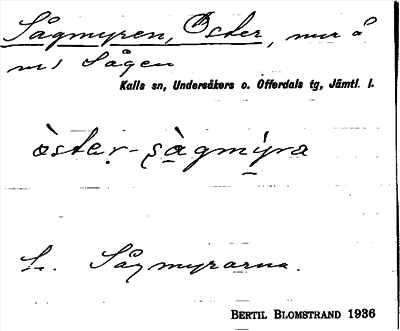 Sågmyren, Öster, myr å
ns Sågen
Kalls sn, Undersåkers o. Offerdals tg, Jämtl. l.
òster-sàgmýra
L. Sågmyrarna.
BERTIL BLOMSTRAND 1936